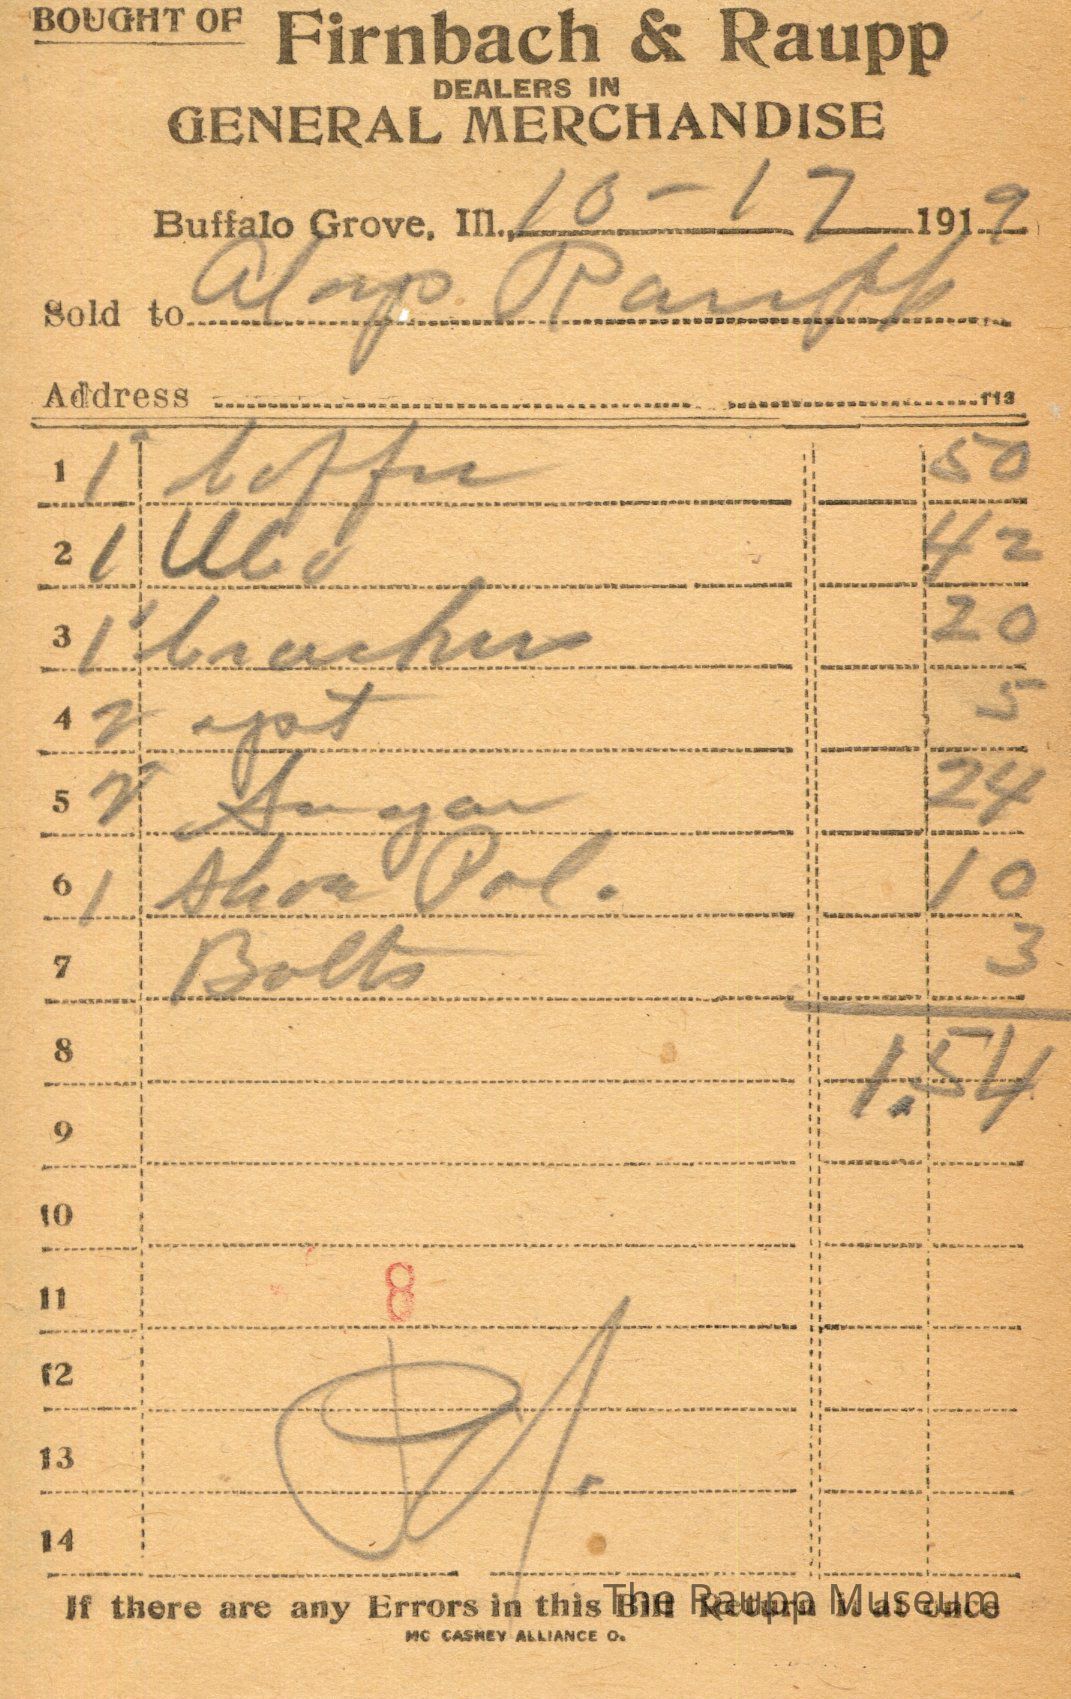 BOUGHT OF Firnbach & Raupp
DEALERS IN
GENERAL MERCHANDISE
Buffalo Grove, Ill., 10-17 1919
Sold to Aloys Raupp
Address
1 1 Coffee 50
2 1 42
3 1 Crackers 20
4 2 yst 5
5 2 Sugar 24
6 1 Shoe Pol. 10
7 Bolts 3
8 1.54
9
10
11 8
12
13
14
If there are any Errors in this Bill Return it at once
The Raupp Museum
MC CASKEY ALLIANCE O.